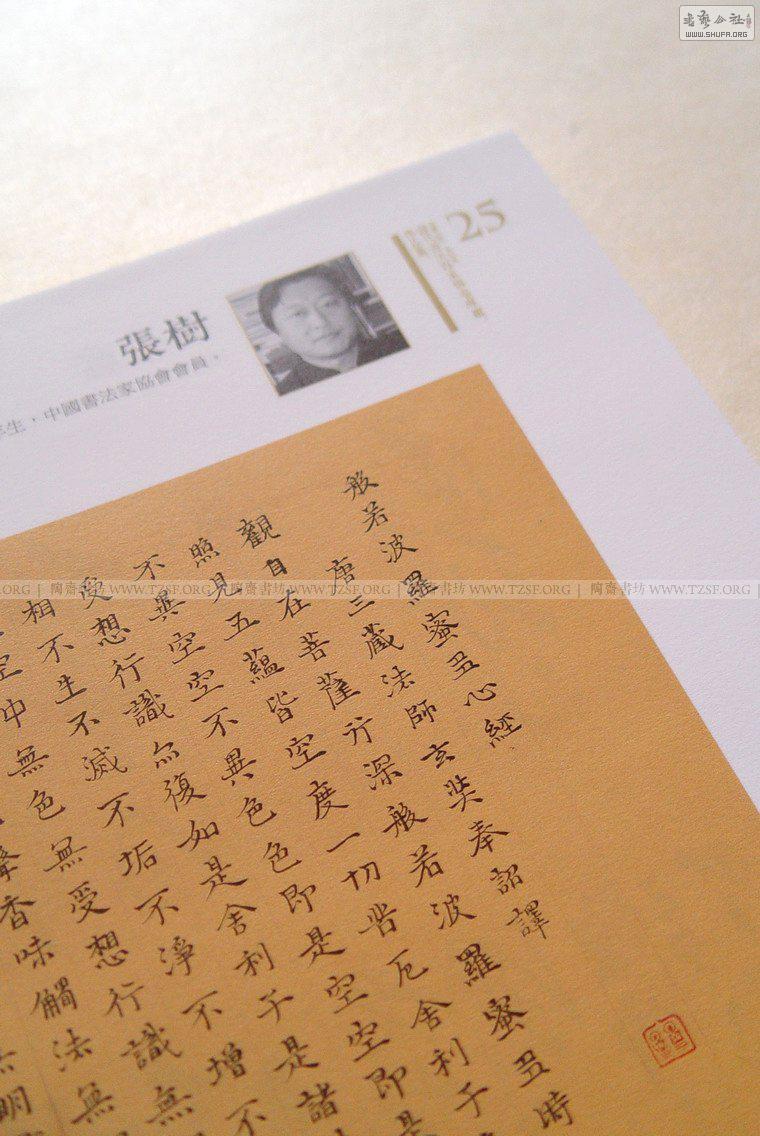 書藝公社
WWW.SHUFA.ORG
25
張樹
年生，中國書法家協會會員。
般若波羅蜜多心經
唐三藏法師玄奘奉詔譯
觀自在菩薩行深般若波羅蜜多時
照見五蘊皆空度一切苦厄舍利子
不異空空不異色色即是空空即是
受想行識亦復如是舍利子是諸
相不生不滅不垢不淨不增不
空中無色無受想行識無
聲香味觸法無
無明
.ORG | 陶齋書坊 WWW.TZSF.ORG | 陶齋書坊 WWW.TZSF.ORG | 陶齋書坊 WWW.TZSF.ORG | 陶齋書坊 WWW.TZSF.ORG |